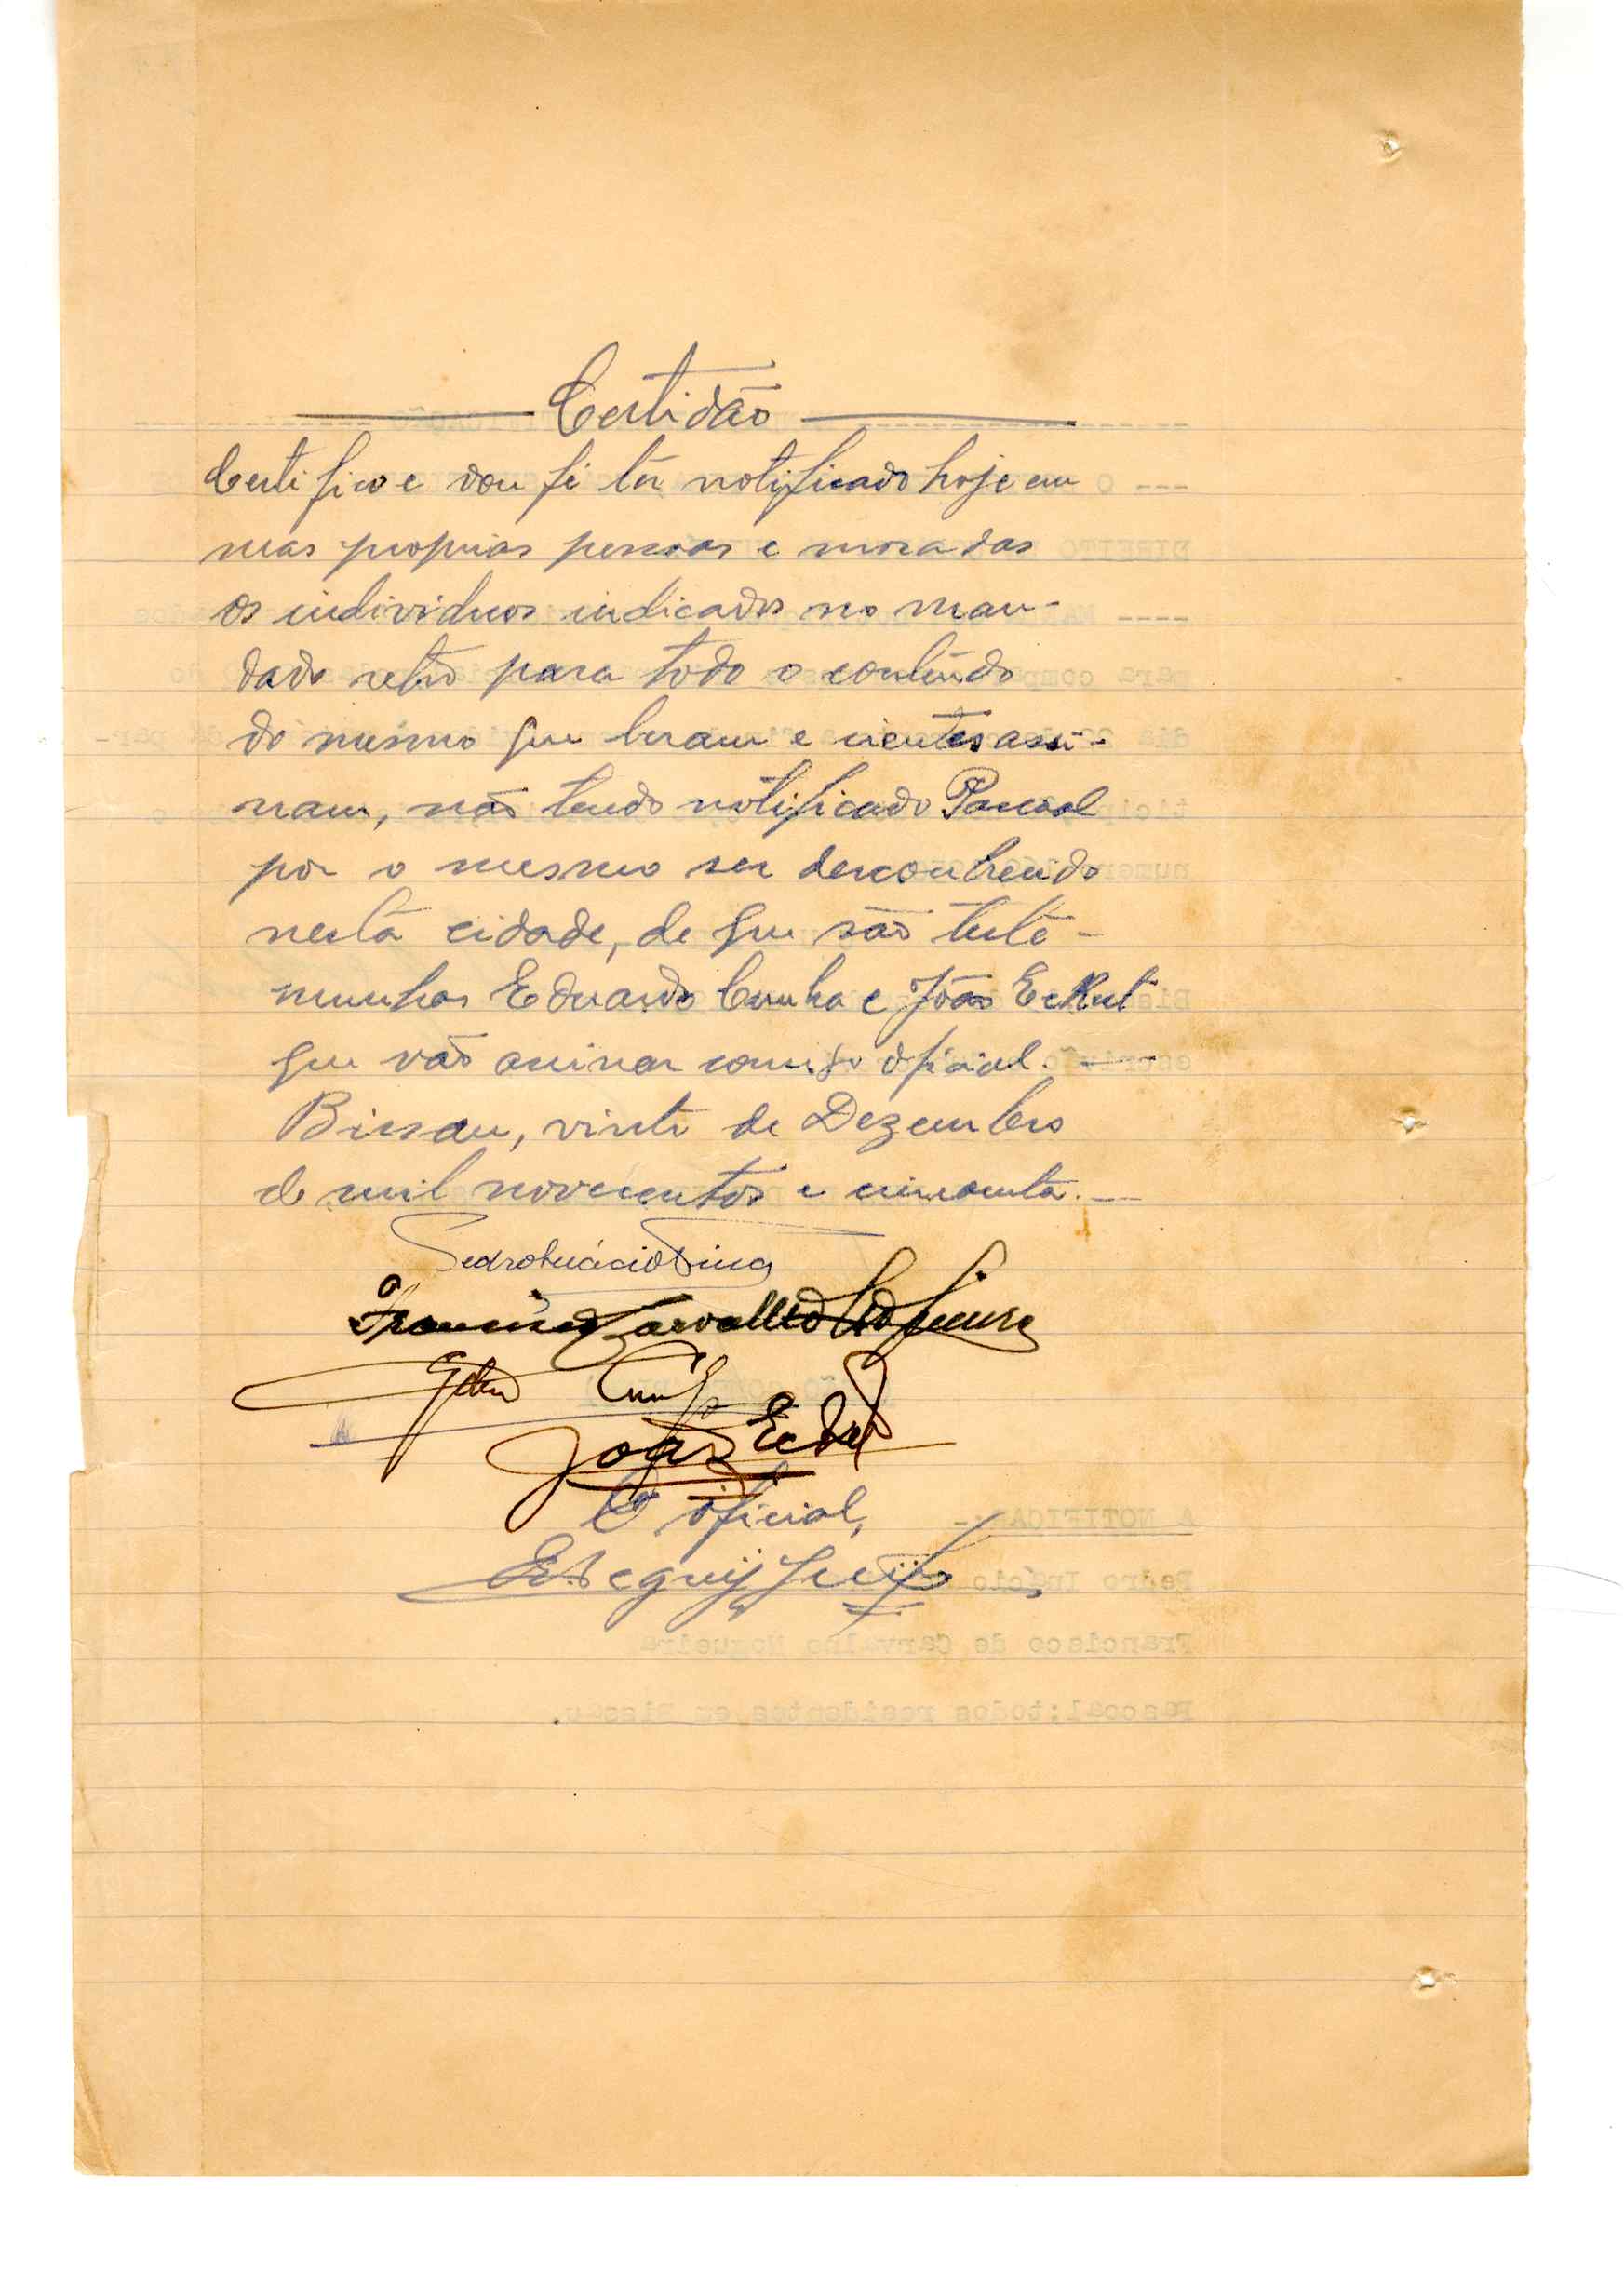 Certidão
Certifico e dou fé ter notificado hoje em
suas proprias pessoas e moradas
os individuos indicados no man-
dado retro para todo o conteúdo
do mesmo que leram e cientes assi-
nam, não tendo notificado Pascoal
por o mesmo ser desconhecido
nesta cidade, de que são teste-
munhas Eduardo Cunha e João Eckert
que vão assinar comigo oficial.
Bissau, vinte de Dezembro
de mil novecentos e cincoenta.
Pedro Inácio
Francisco Carvalho
Cunha
João
O oficial,
A NOTIFICAR:-
Pedro Inácio
Francisco de Carvalho Nogueira
Pascoal; todos residentes em Bissau.